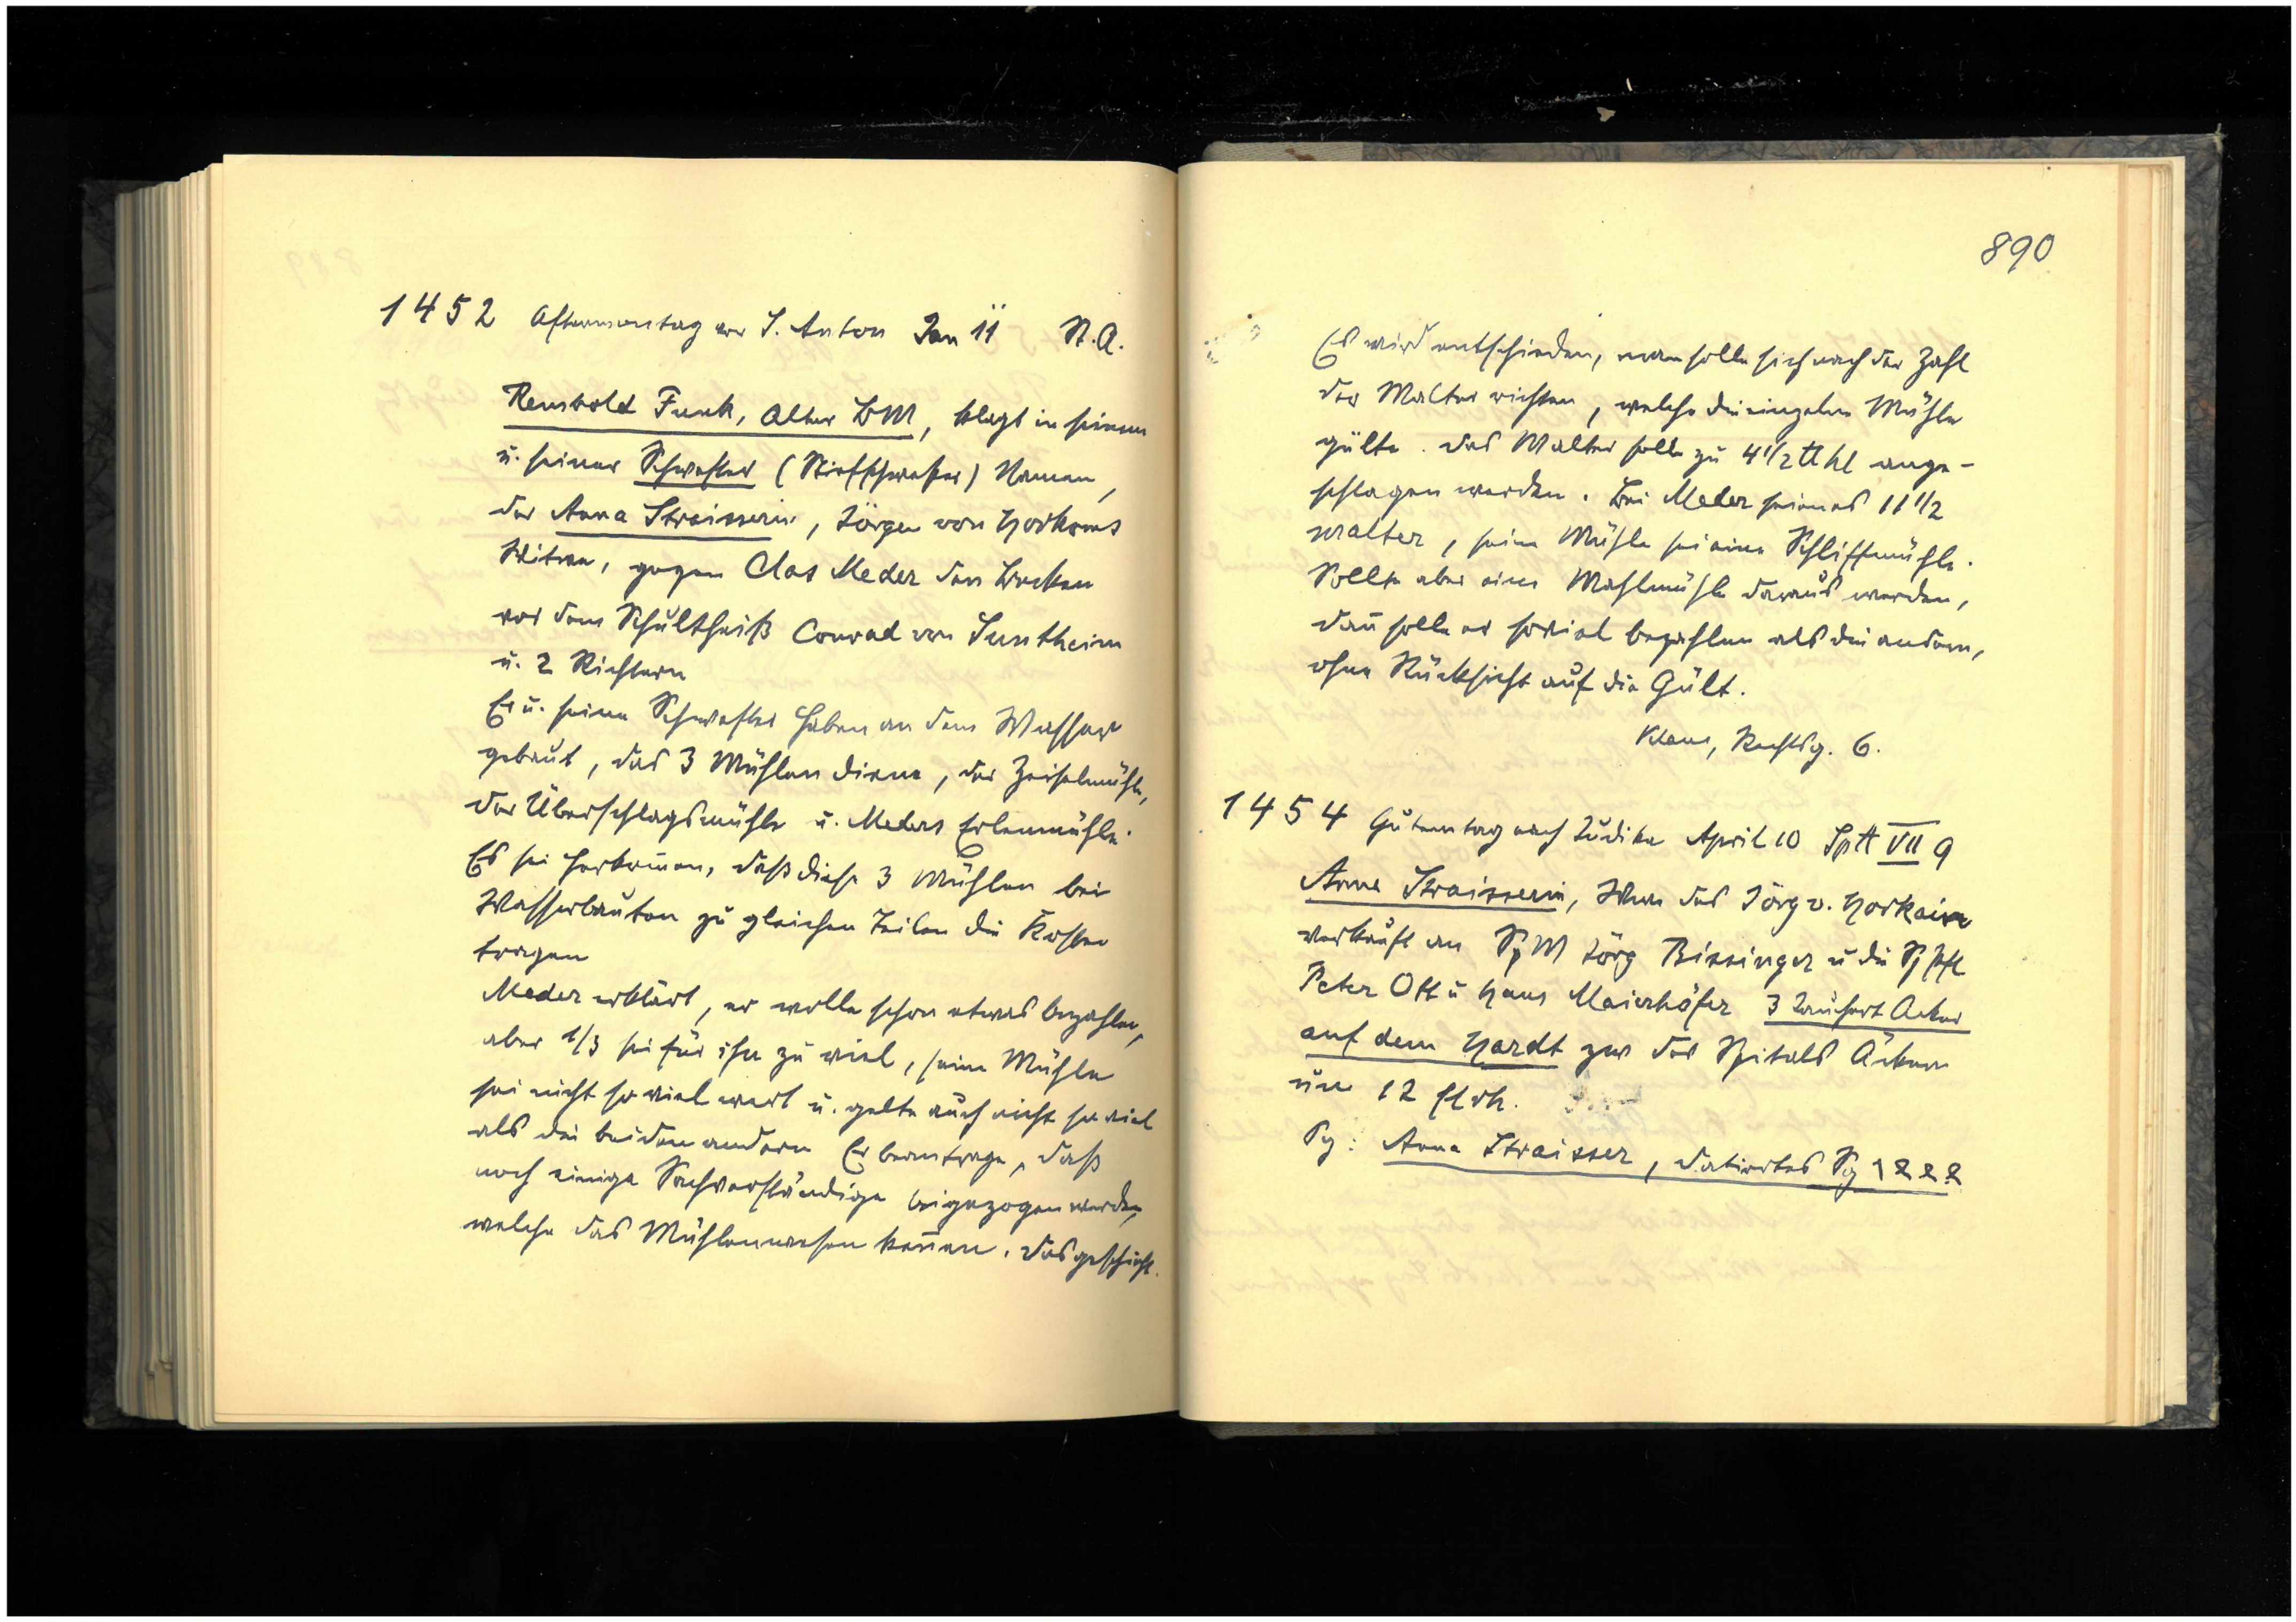 1452 Aftermontag vor S. Anton Jan 11 St. A.
Rembold Funk, Alter BM, klagt in seinem
u. seiner Schwester (Stiefschwester) Namen,
der Anna Straisserin, Jörgen von Horkems
Witwe, gegen Clas Meder den Becken
vor dem Schultheiß Conrad von Suntheim
u. 2 Richtern
Er u. seine Schwester haben an dem Wasser
gebaut, das 3 Mühlen diene, der Zeiselmühle,
der Überschlagsmühle u. Meders Erlenmühle.
Es sei herkom̄en, daß diese 3 Mühlen bei
Wasserbauten zu gleichen Teilen die Kosten
tragen
Meder erklärt, er wolle schon etwas bezahlen,
aber 1/3 sei für ihn zu viel, seine Mühle
sei nicht so viel wert u. gelte auch nicht so viel
als die beiden andern Er beantrage, daß
noch einige Sachverständige beigezogen werden,
welche das Mühlenwesen ken̄en. Das geschieht.
890
Es wird entschieden, man solle sich nach der Zahl
der Malter richten, welche die einzelne Mühle
gülte. Das Malter solle zu 4 1/2 ℔ hl ange-
schlagen werden. Bei Meder seien es 11 1/2
Malter, seine Mühle sei eine Schliffmühle.
Sollte aber eine Mahlmühle daraus werden,
dan̄ solle er soviel bezahlen als die andern,
ohne Rücksicht auf die Gült.
Klaus, Rechtsg. 6.
1454 Gutemtag nach Judika April 10 Sp ℔ VII 9
Anna Straisserin, Wwe des Jörg v. Horkain
verkauft an SpM Jörg Bissinger u die SpPfl
Peter Ott u Hans Maierhöfer 3 Jauchert Acker
auf dem Hardt zw des Spitals Äckern
um 12 fl rh.
Sg: Anna Straisser, datiertes Sg